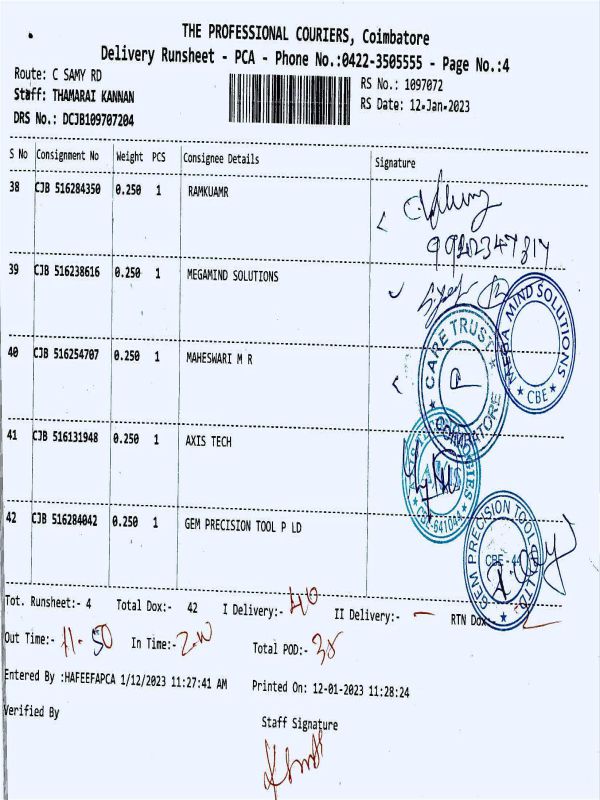 THE PROFESSIONAL COURIERS, Coimbatore
Delivery Runsheet - PCA - Phone No.:0422-3505555 - Page No.:4
Route: C SAMY RD
RS No.: 1097072
Staff: THAMARAI KANNAN
RS Date: 12-Jan-2023
DRS No.: DCJB109707204
S No Consignment No Weight PCS Consignee Details Signature
38 CJB 516284350 0.250 1 RAMKUAMR
39 CJB 516238616 0.250 1 MEGAMIND SOLUTIONS
MEGA MIND SOLUTIONS
★ CBE ★
40 CJB 516254707 0.250 1 MAHESWARI M R
CARE TRUST
COIMBATORE
41 CJB 516131948 0.250 1 AXIS TECH
AXIS
CBE-641044
42 CJB 516284042 0.250 1 GEM PRECISION TOOL P LD
GEM PRECISION TOOL
CBE - 44
Tot. Runsheet:- 4 Total Dox:- 42 I Delivery:- 40 II Delivery:- — RTN Dox:- 2
Out Time:- 11-50 In Time:- 2-10 Total POD:- 38
Entered By :HAFEEFAPCA 1/12/2023 11:27:41 AM Printed On: 12-01-2023 11:28:24
Verified By
Staff Signature